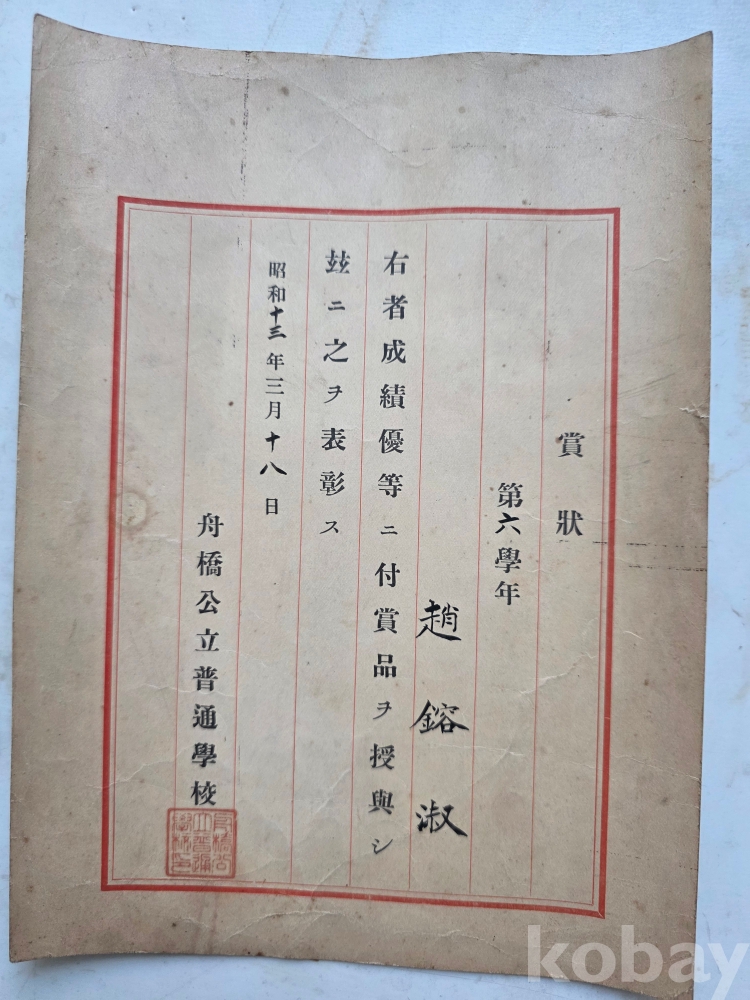 賞狀
第六學年
趙鎔淑
右者成績優等ニ付賞品ヲ授與シ
玆ニ之ヲ表彰ス
昭和十三年三月十八日
舟橋公立普通學校
舟橋公立普通學校印
kobay